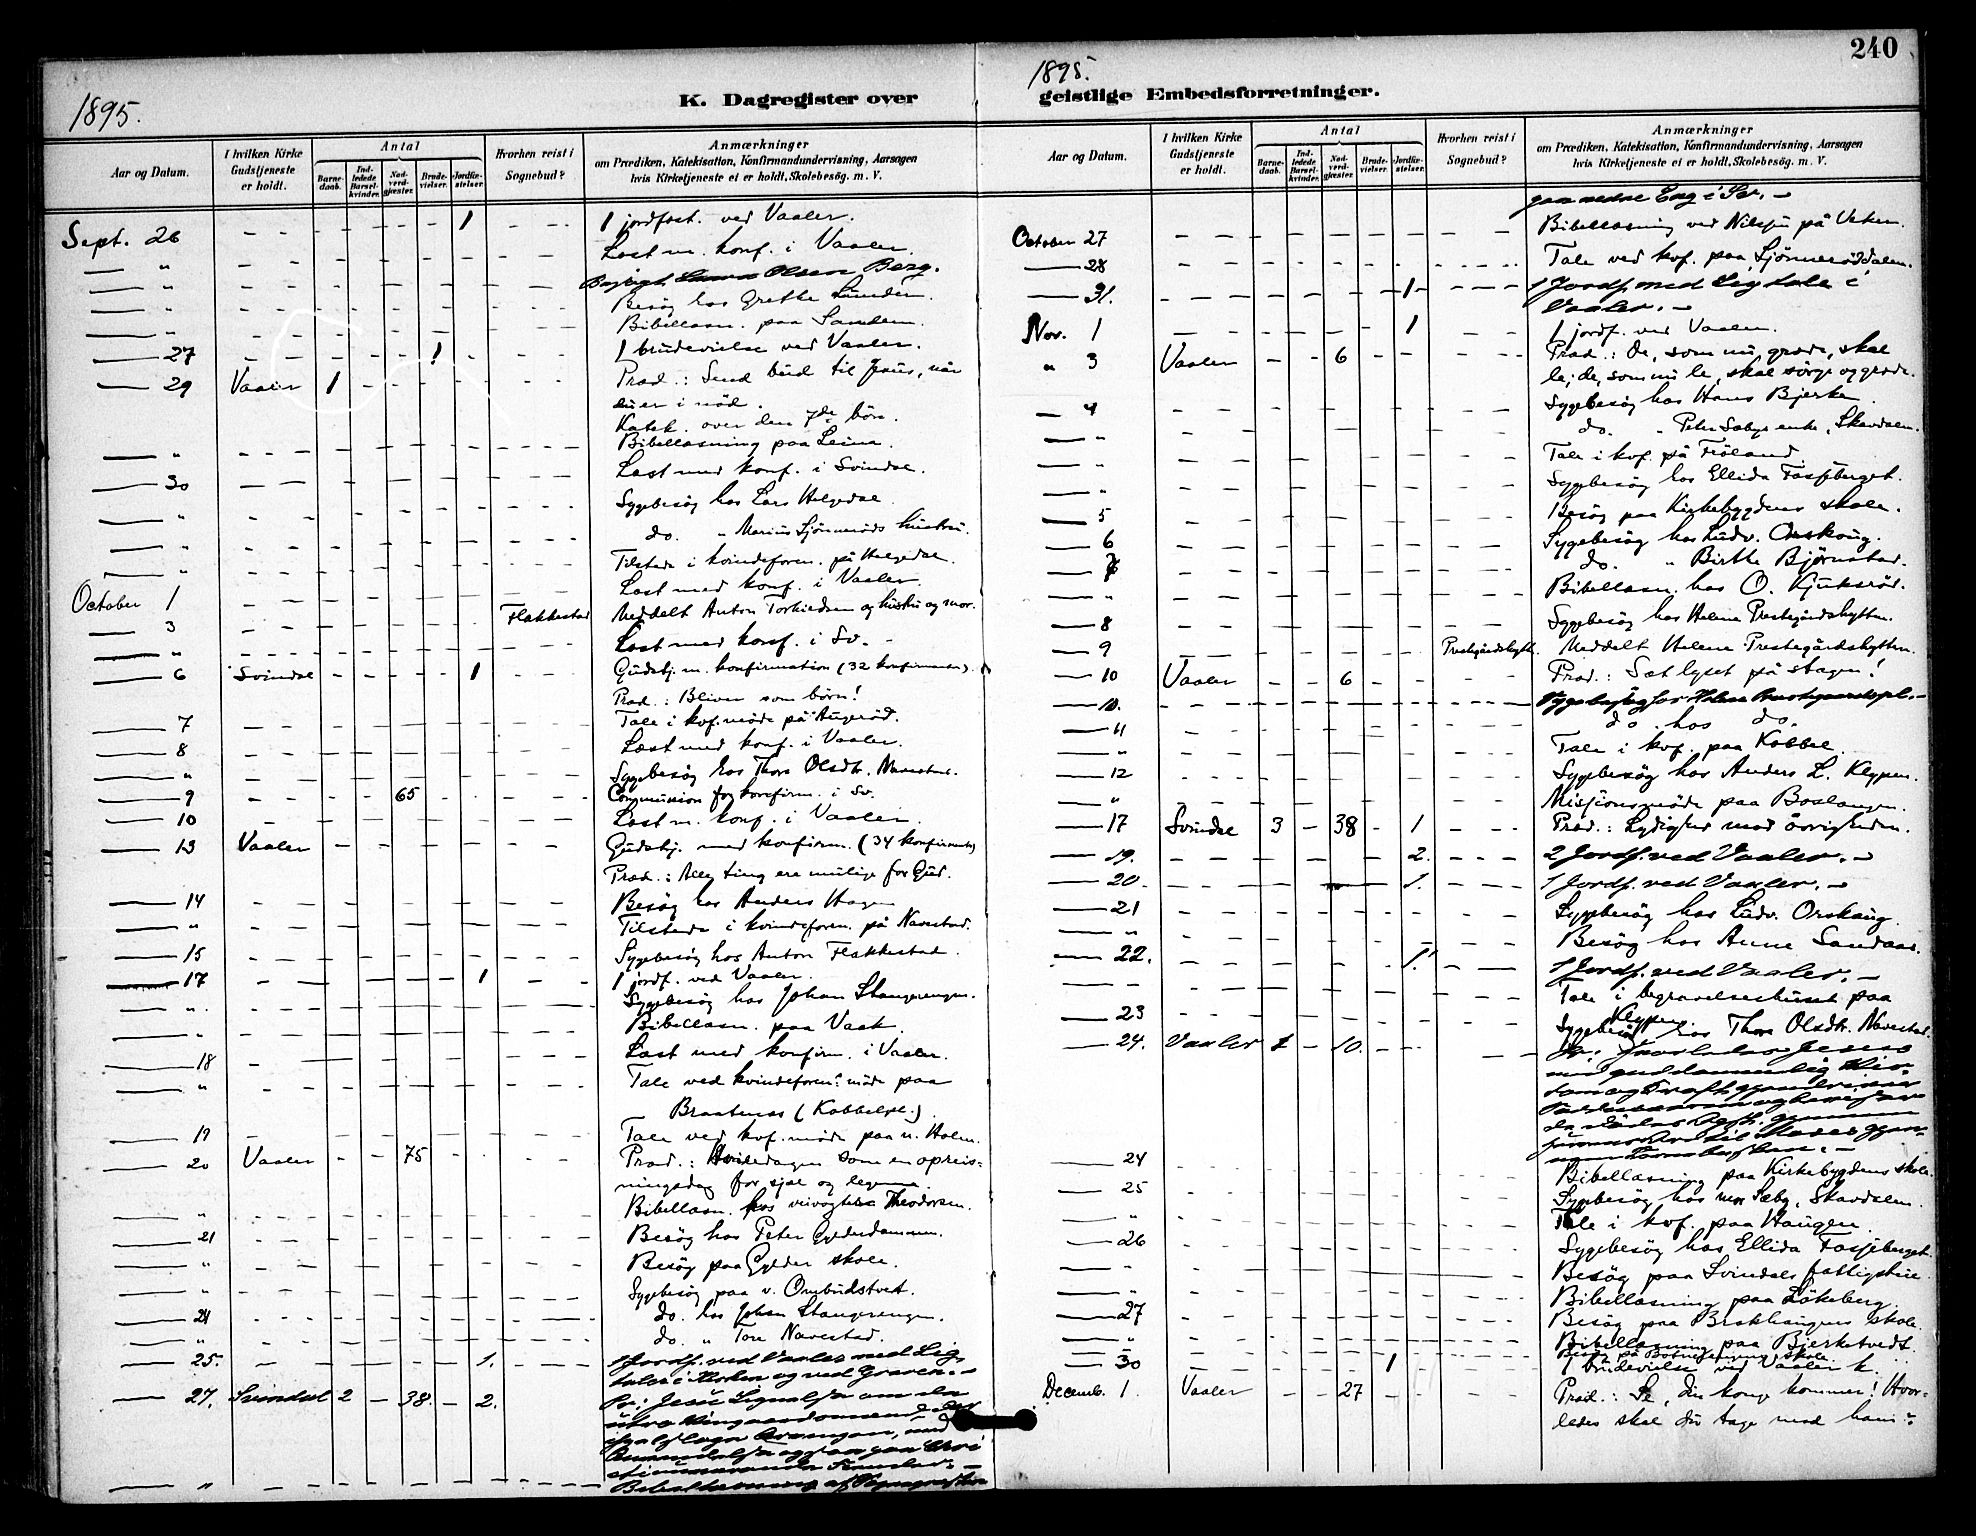 240
1895.
1895.
K. Dagregister over
geistlige Embedsforretninger.
Aar og Datum.
I hvilken Kirke Gudstjeneste er holdt.
Antal
Barne-daab.
Ind-ledede Barsel-kvinder.
Nad-verd-gjæster.
Brude-vielser.
Jordfæ-stelser.
Hvorhen reist i Sognebud?
Anmærkninger
om Prædiken, Katekisation, Konfirmandundervisning, Aarsagen
hvis Kirketjeneste ei er holdt, Skolebesøg. m. V.
Sept. 26 1 1 jordfæst. ved Vaaler.
" Læst m. konf. i Vaaler.
" Olsen Berg.
" Besøg hos Grethe Lunden.
" Bibellæsn. paa Sanden.
27 1 1 brudevielse ved Vaaler.
29 Vaaler 1 Præd.: Send bud til Jesus, når
du er i nød.
Katek. over den 7de bøn.
" Bibellæsning paa Leina.
30 Læst med konf. i Svindal.
" Sygebesøg hos Lars Helgedal.
" do. " Marius Sjønnerøds hustru.
" Tilstede i kvindeforen. på Helgedal.
October 1 Læst med konf. i Vaaler.
3 Flakkestad Meddelt Anton Torkildsen og hustru og mor.
" Læst med konf. i Sv.
6 Svindal 1 Gudstj. m. konfirmation (32 konfirmanter).
Præd.: Bliver som børn!
7 Tale i kvf. møde på Augerød.
8 Læst med konf. i Vaaler.
" Sygebesøg hos Thora Olsdtr. Navestad.
9 65 Communion for konfirm. i Sv.
10 Læst m. konf. i Vaaler.
13 Vaaler Gudstj. med konfirm. (34 konfirmanter)
Præd.: Alle ting ere mulige for Gud.
14 Besøg hos Anders Hagen
" Tilstede i kvindeforen. på Navestad.
15 Sygebesøg hos Anton Flakkestad.
17 1 1 jordf. ved Vaaler.
" Sygebesøg hos Johan Stangerengen.
" Bibellæsn. paa Vaak.
18 Læst med konfirm. i Vaaler.
" Tale ved kvindeforen. møde paa
Braatenes (Kobbelpl.).
19 Tale ved kvf. møde paa n. Holm.
20 Vaaler 75 Præd.: Hviledagen som en opreis-
ningsdag for sjæl og legeme.
" Bibellæsn. hos veivogter Theodorsen.
21 Besøg hos Peter Gylderdammen.
" Besøg paa Gylder skole.
" Sygebesøg paa v. Ombudstvet.
24 do. hos Johan Stangerengen.
" do. " Tore Navestad.
25. 1. 1 Jordf. ved Vaaler med Lig-
tale i Kirken og ved Graven.
27. Svindal 2 38. 2. Pr.: Jesu Lignelse om den
"
Aar og Datum.
I hvilken Kirke Gudstjeneste er holdt.
Antal
Barne-daab.
Ind-ledede Barsel-kvinder.
Nad-verd-gjæster.
Brude-vielser.
Jordfæ-stelser.
Hvorhen reist i Sognebud?
Anmærkninger
om Prædiken, Katekisation, Konfirmandundervisning, Aarsagen
hvis Kirketjeneste ei er holdt, Skolebesøg. m. V.
Eng i Sv.
October 27 Bibellæsning ved Nilsen på Utken.
28 Tale ved kvf. paa Sjønnerøddalen.
31. 1 1 Jordf. med Ligtale i
Vaaler.
Nov. 1 1 1 jordf. ved Vaaler.
" 3 Vaaler 6 Præd.: De, som nu græde, skal
le; de, som nu le, skal sørge og græde.
4 Sygebesøg hos Hans Bjerke.
" do. " Peter Sæbys enke, Skavdalen.
" Tale i kvf. på Frøland.
" Sygebesøg hos Ellida Fosjeberget.
5 Besøg paa Kirkebygdens skole.
6 Sygebesøg hos Ludv. Orskoug.
7 do. " Birthe Bjørnstad.
" Bibellæsn. hos O. Kjuksrød.
8 Sygebesøg hos Helene Prestegårdshytten.
9 Prestegårdshytt. Meddelt Helene Prestegårdshytten.
10 Vaaler 6 Præd.: Sæt lyset på stagen!
10. Sygebesøg hos Helene
11 do. hos do.
" Tale i kvf. paa Kobbel.
12 Sygebesøg hos Anders L. Kleppen.
" Missionsmøde paa Boslangen.
17 Svindal 3 38 1 Præd.: Lydighed mod øvrigheden.
19. 2. 2 Jordf. ved Vaaler.
20. 1. 1 Jordf. ved Vaaler.
21 Sygebesøg hos Ludv. Orskaug
" Besøg hos Anne Sandaas.
22. 1. 1 Jordf. ved Vaaler.
Tale i begravelseshuset paa
Kleppen
23 Sygebesøg hos Thora Olsdtr. Navestad.
24. Vaaler 1 10.
24 Bibellæsning paa Kirkebygdens skole.
25 Sygebesøg hos Sæby, Skavdalen.
" Tale i kvf. paa Haugen.
26 Sygebesøg hos Ellida Fosjeberget.
" Besøg paa Svindals fattighus.
" Bibellæsning paa Løkeberg.
27 Besøg paa skole.
" Bibellæsning paa Bjerketvedt.
" Besøg på skole.
30 1 1 brudevielse ved Vaaler k.
Decemb. 1. Vaaler 27 Præd.: Se, din konge kommer! Hvor-
ledes skal du tage mod ham?